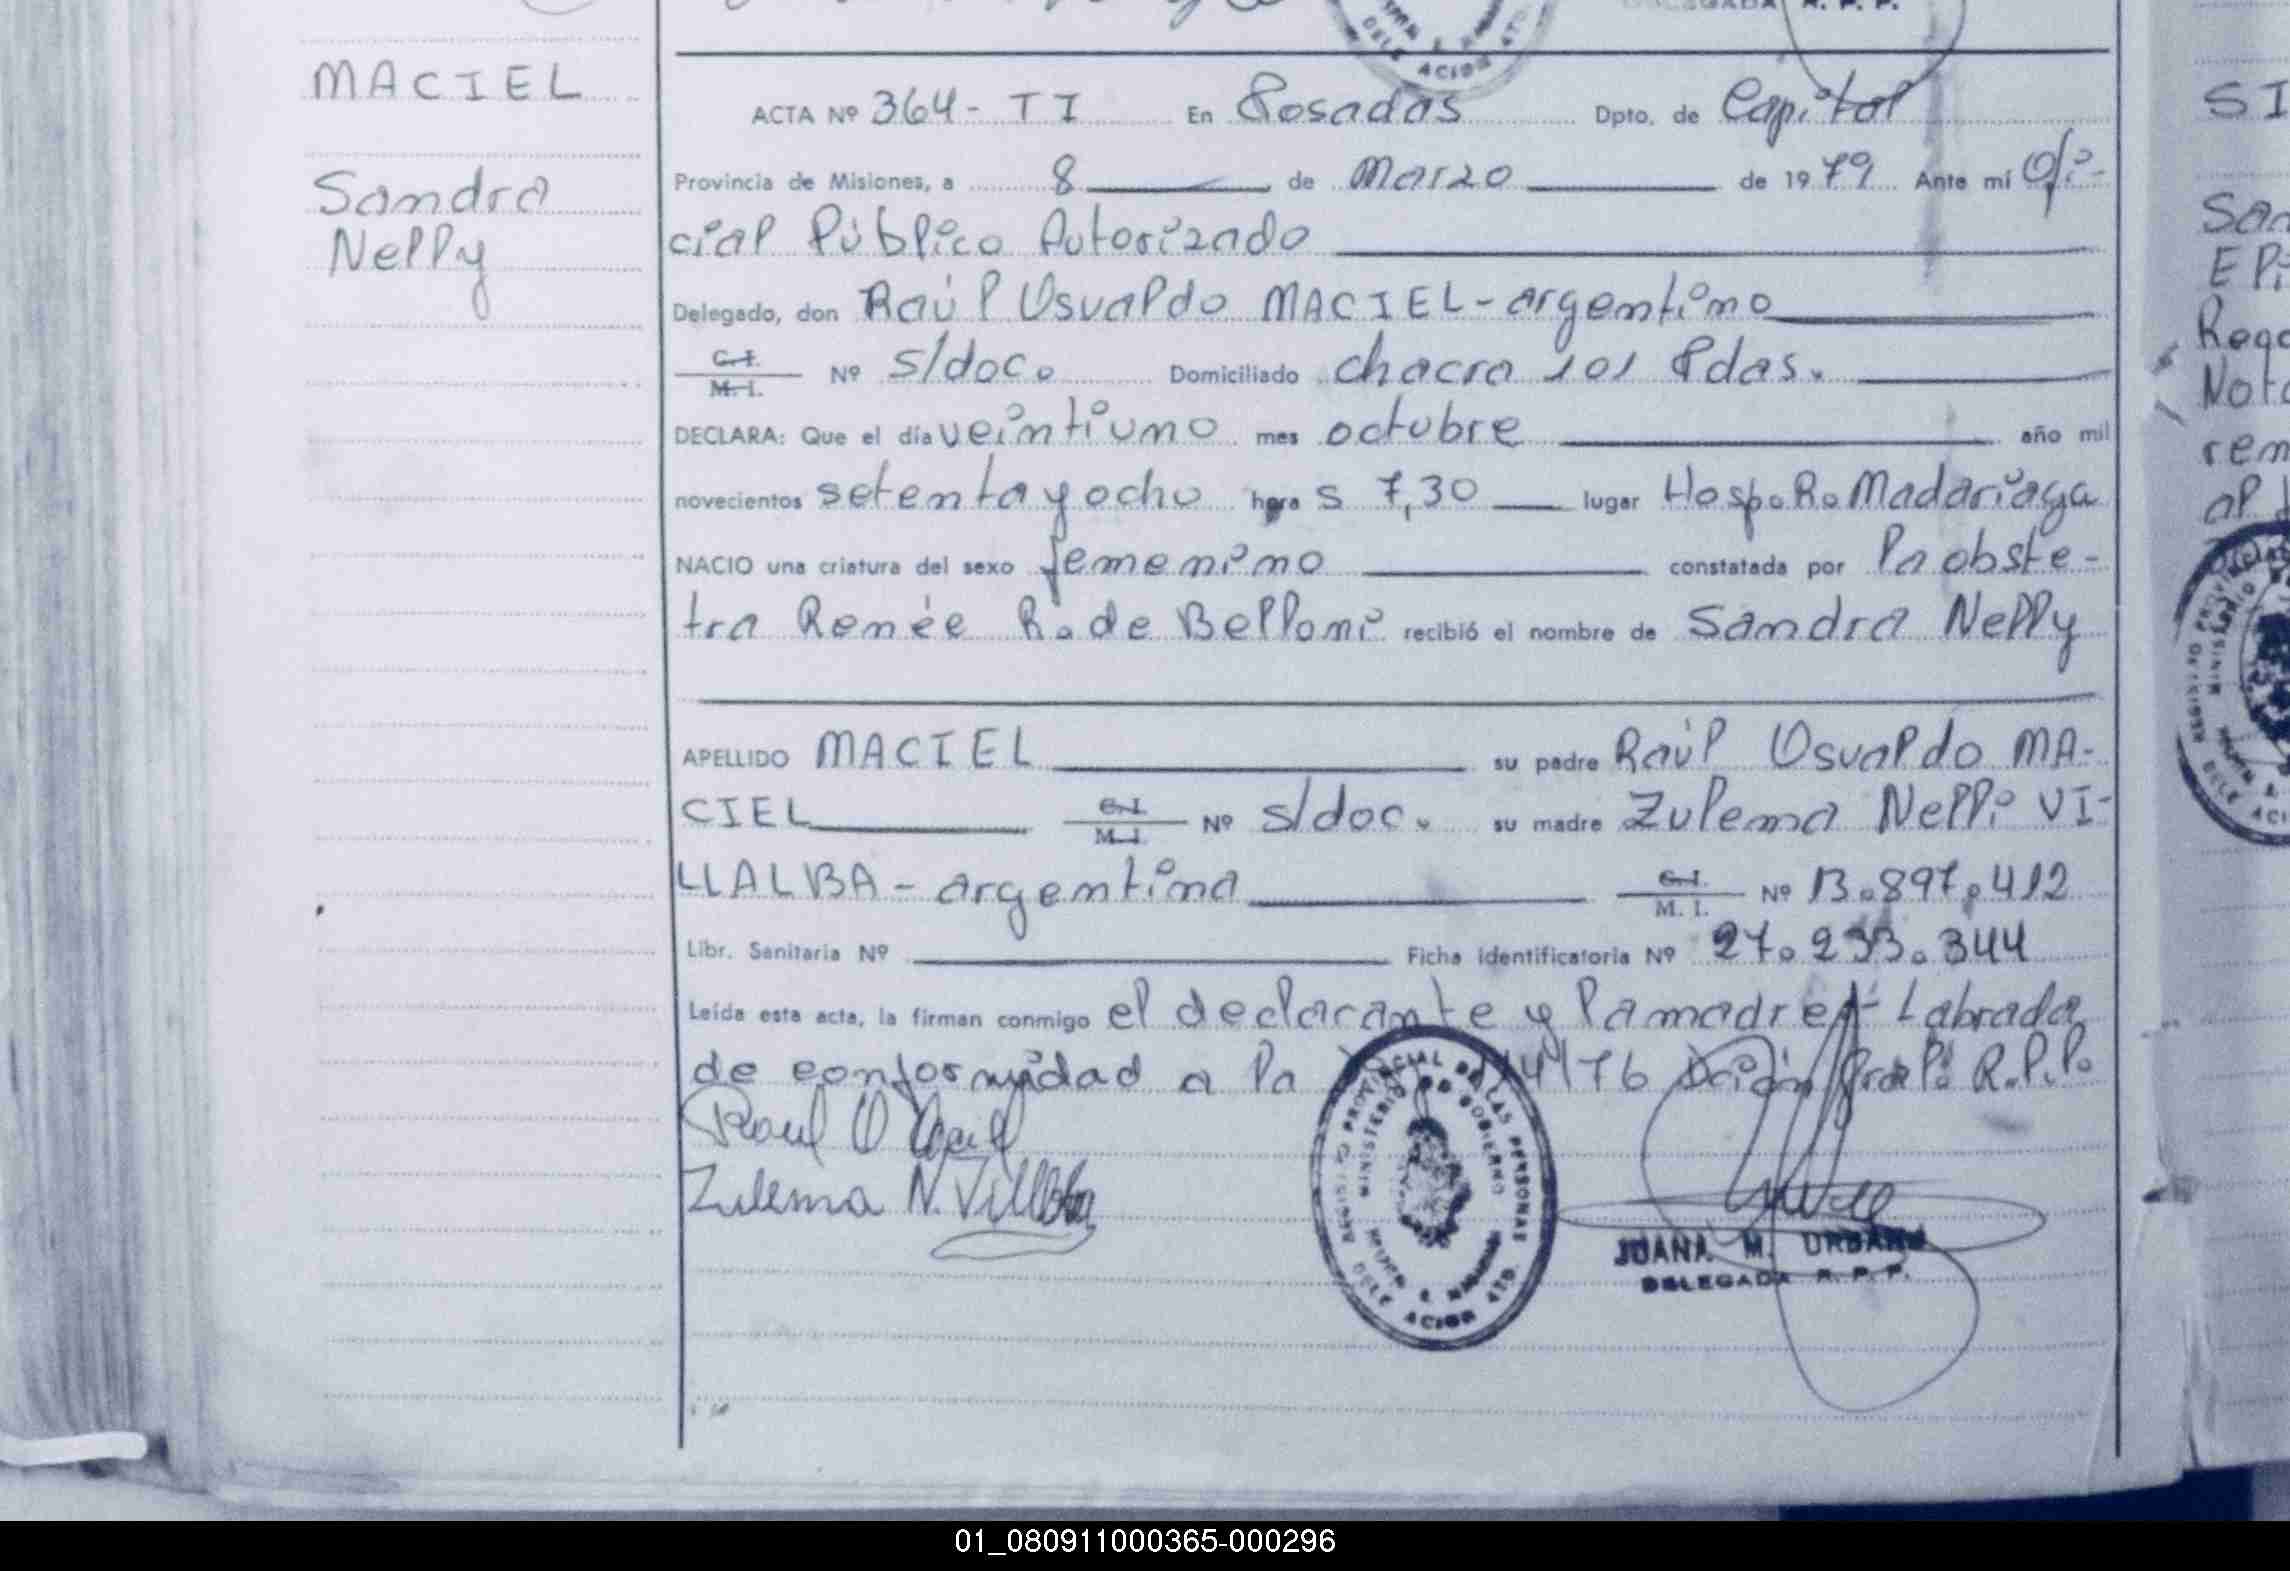 MACIEL
Sandra
Nelly
ACTA Nº 364- TI En Posadas Dpto. de Capital
Provincia de Misiones, a 8 de Marzo de 1979 Ante mí Ofi-
cial Público Autorizado
Delegado, don Raúl Osvaldo MACIEL-argentino
C.I. M.I. Nº s/doc. Domiciliado chacra 101 Pdas.
DECLARA: Que el día veintiuno mes octubre año mil
novecientos setenta y ocho hora s 7,30 lugar Hosp. R. Madariaga
NACIO una criatura del sexo femenino constatada por la obste-
tra Renée R. de Belloni recibió el nombre de Sandra Nelly
APELLIDO MACIEL su padre Raúl Osvaldo MA-
CIEL C.I. M.I. Nº s/doc. su madre Zulema Nelli VI-
LLALBA - argentina C.I. M.I. Nº 13.897.412
Libr. Sanitaria Nº Ficha identificatoria Nº 27.233.344
Leída esta acta, la firman conmigo el declarante y la madre.- Labrada
de conformidad a la 4/76 Dción Gral. R.P.P.
Raul O Maciel
Zulema N. Villalba
REGISTRO PROVINCIAL DE LAS PERSONAS
MINISTERIO DE GOBIERNO
DELE ACION 4TO.
JUANA M. URBANO
DELEGADA R. P. P.
SI
San
Eli
Nota
rem
al
01_080911000365-000296